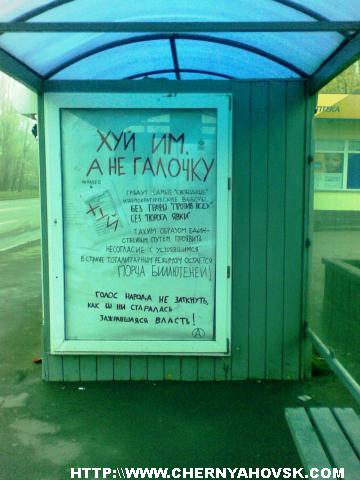 ХУЙ ИМ,
А НЕ ГАЛОЧКУ
ГРЯДУТ САМЫЕ "СВОБОДНЫЕ"
И ДЕМОКРАТИЧЕСКИЕ ВЫБОРЫ
БЕЗ ГРАФЫ "ПРОТИВ ВСЕХ"
БЕЗ "ПОРОГА ЯВКИ"
ТАКИМ ОБРАЗОМ ЕДИН-
СТВЕННЫМ ПУТЕМ ПРОЯВИТЬ
НЕСОГЛАСИЕ С УСТОЯВШИМСЯ
В СТРАНЕ ТОТАЛИТАРНЫМ РЕЖИМОМ ОСТАЕТСЯ
ПОРЧА БЮЛЛЕТЕНЕЙ!
ГОЛОС НАРОДА НЕ ЗАТКНУТЬ,
КАК БЫ НИ СТАРАЛАСЬ
ЗАЖРАВШАЯСЯ ВЛАСТЬ!
ПТЕКА
HTTP:\\WWW.CHERNYAHOVSK.COM